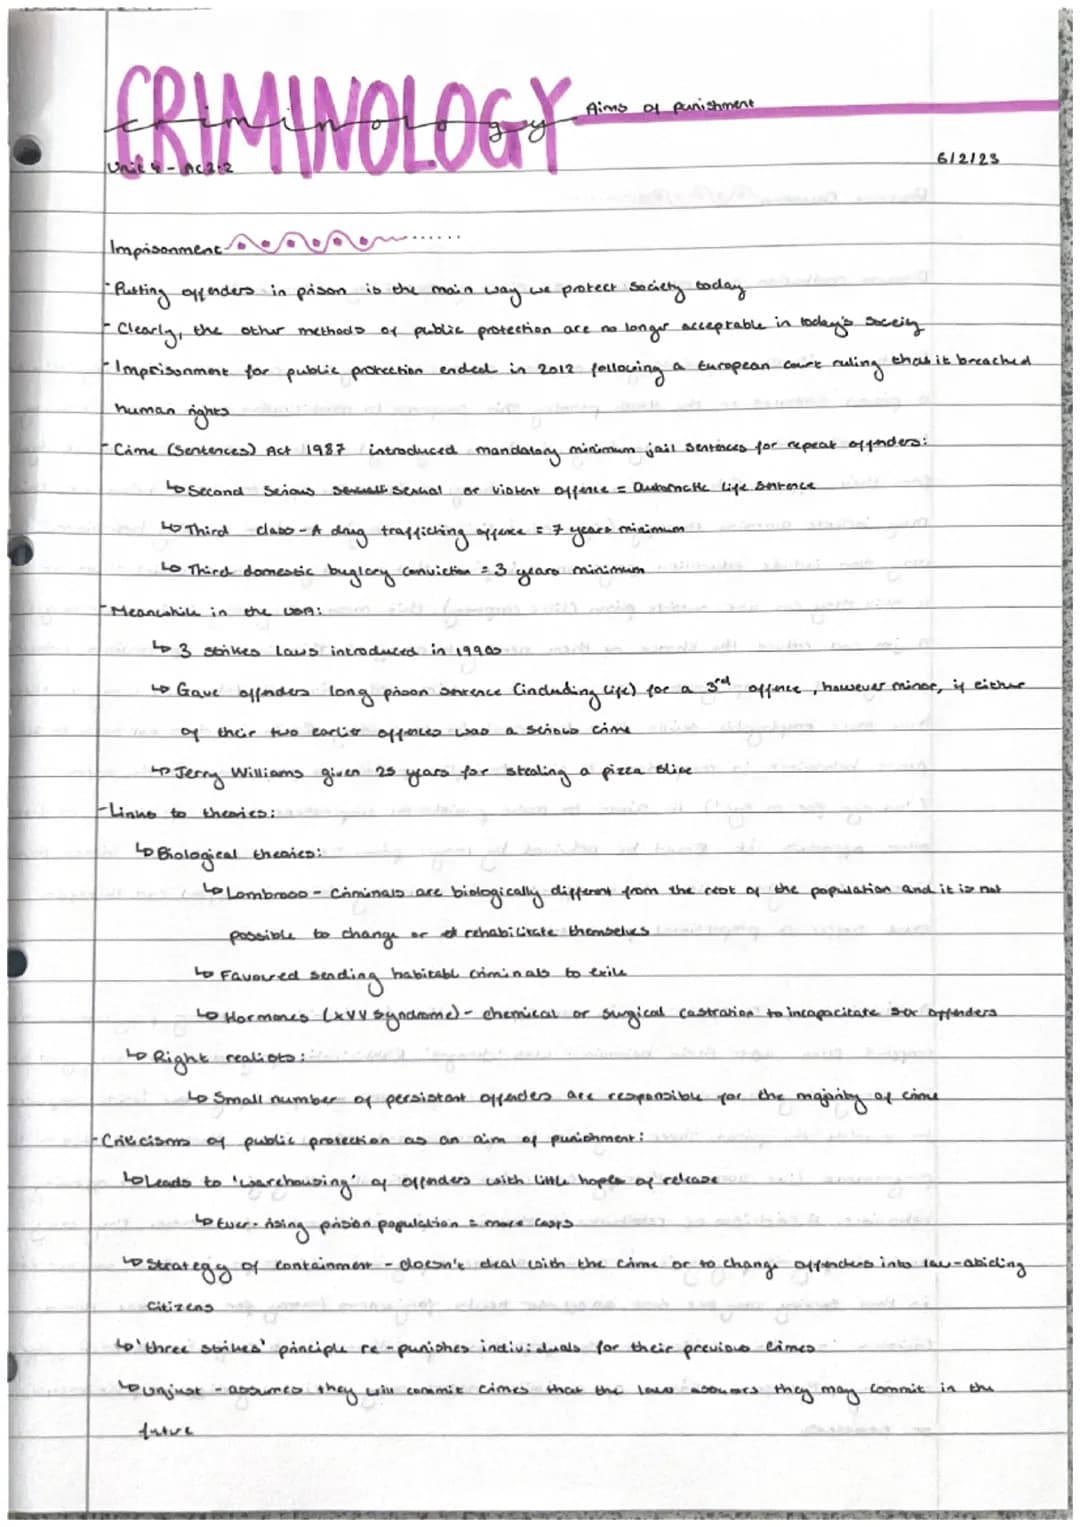 CRIMINOLOGY
criminology
Aims of punishment
Unit 4 - AC2.2
6/2/23
Imprisonment
- Putting offenders in prison is the main way we protect society today
- Clearly, the other methods of public protection are no longer acceptable in today's soceity
- Imprisonment for public protection ended in 2012 following a European court ruling that it breached
human rights
- Crime (Sentences) Act 1987 introduced mandatory minimum jail sentences for repeat offenders:
↳ Second serious sexual or violent offence = automatic life sentence
↳ Third class-A drug trafficking offence = 7 years minimum
↳ Third domestic buglary conviction = 3 years minimum
- Meanwhile in the USA:
↳ 3 strikes laws introduced in 1990s
↳ Gave offenders long prison sentence (including life) for a 3rd offence, however minor, if either
of their two earlier offences was a serious crime
↳ Jerry Williams given 25 years for stealing a pizza slice
- Links to theories:
↳ Biological theories:
↳ Lombroso - Criminals are biologically different from the rest of the population and it is not
possible to change or rehabilitate themselves
↳ Favoured sending habitabl criminals to exile
↳ Hormones (XYY syndrome) - chemical or surgical castration to incapacitate sex offenders
↳ Right realists:
↳ Small number of persistant offenders are responsible for the majority of crime
- Criticisms of public protection as an aim of punishment:
↳ Leads to 'warehousing' of offenders with little hopes of release
↳ Ever-rising prison population = more costs
↳ Strategy of containment - doesn't deal with the crime or to change offenders into law-abiding
citizens
↳ 'three strikes' principle re-punishes individuals for their previous crimes
↳ Unjust - assumes they will commit crimes that the law assumes they may commit in the
future